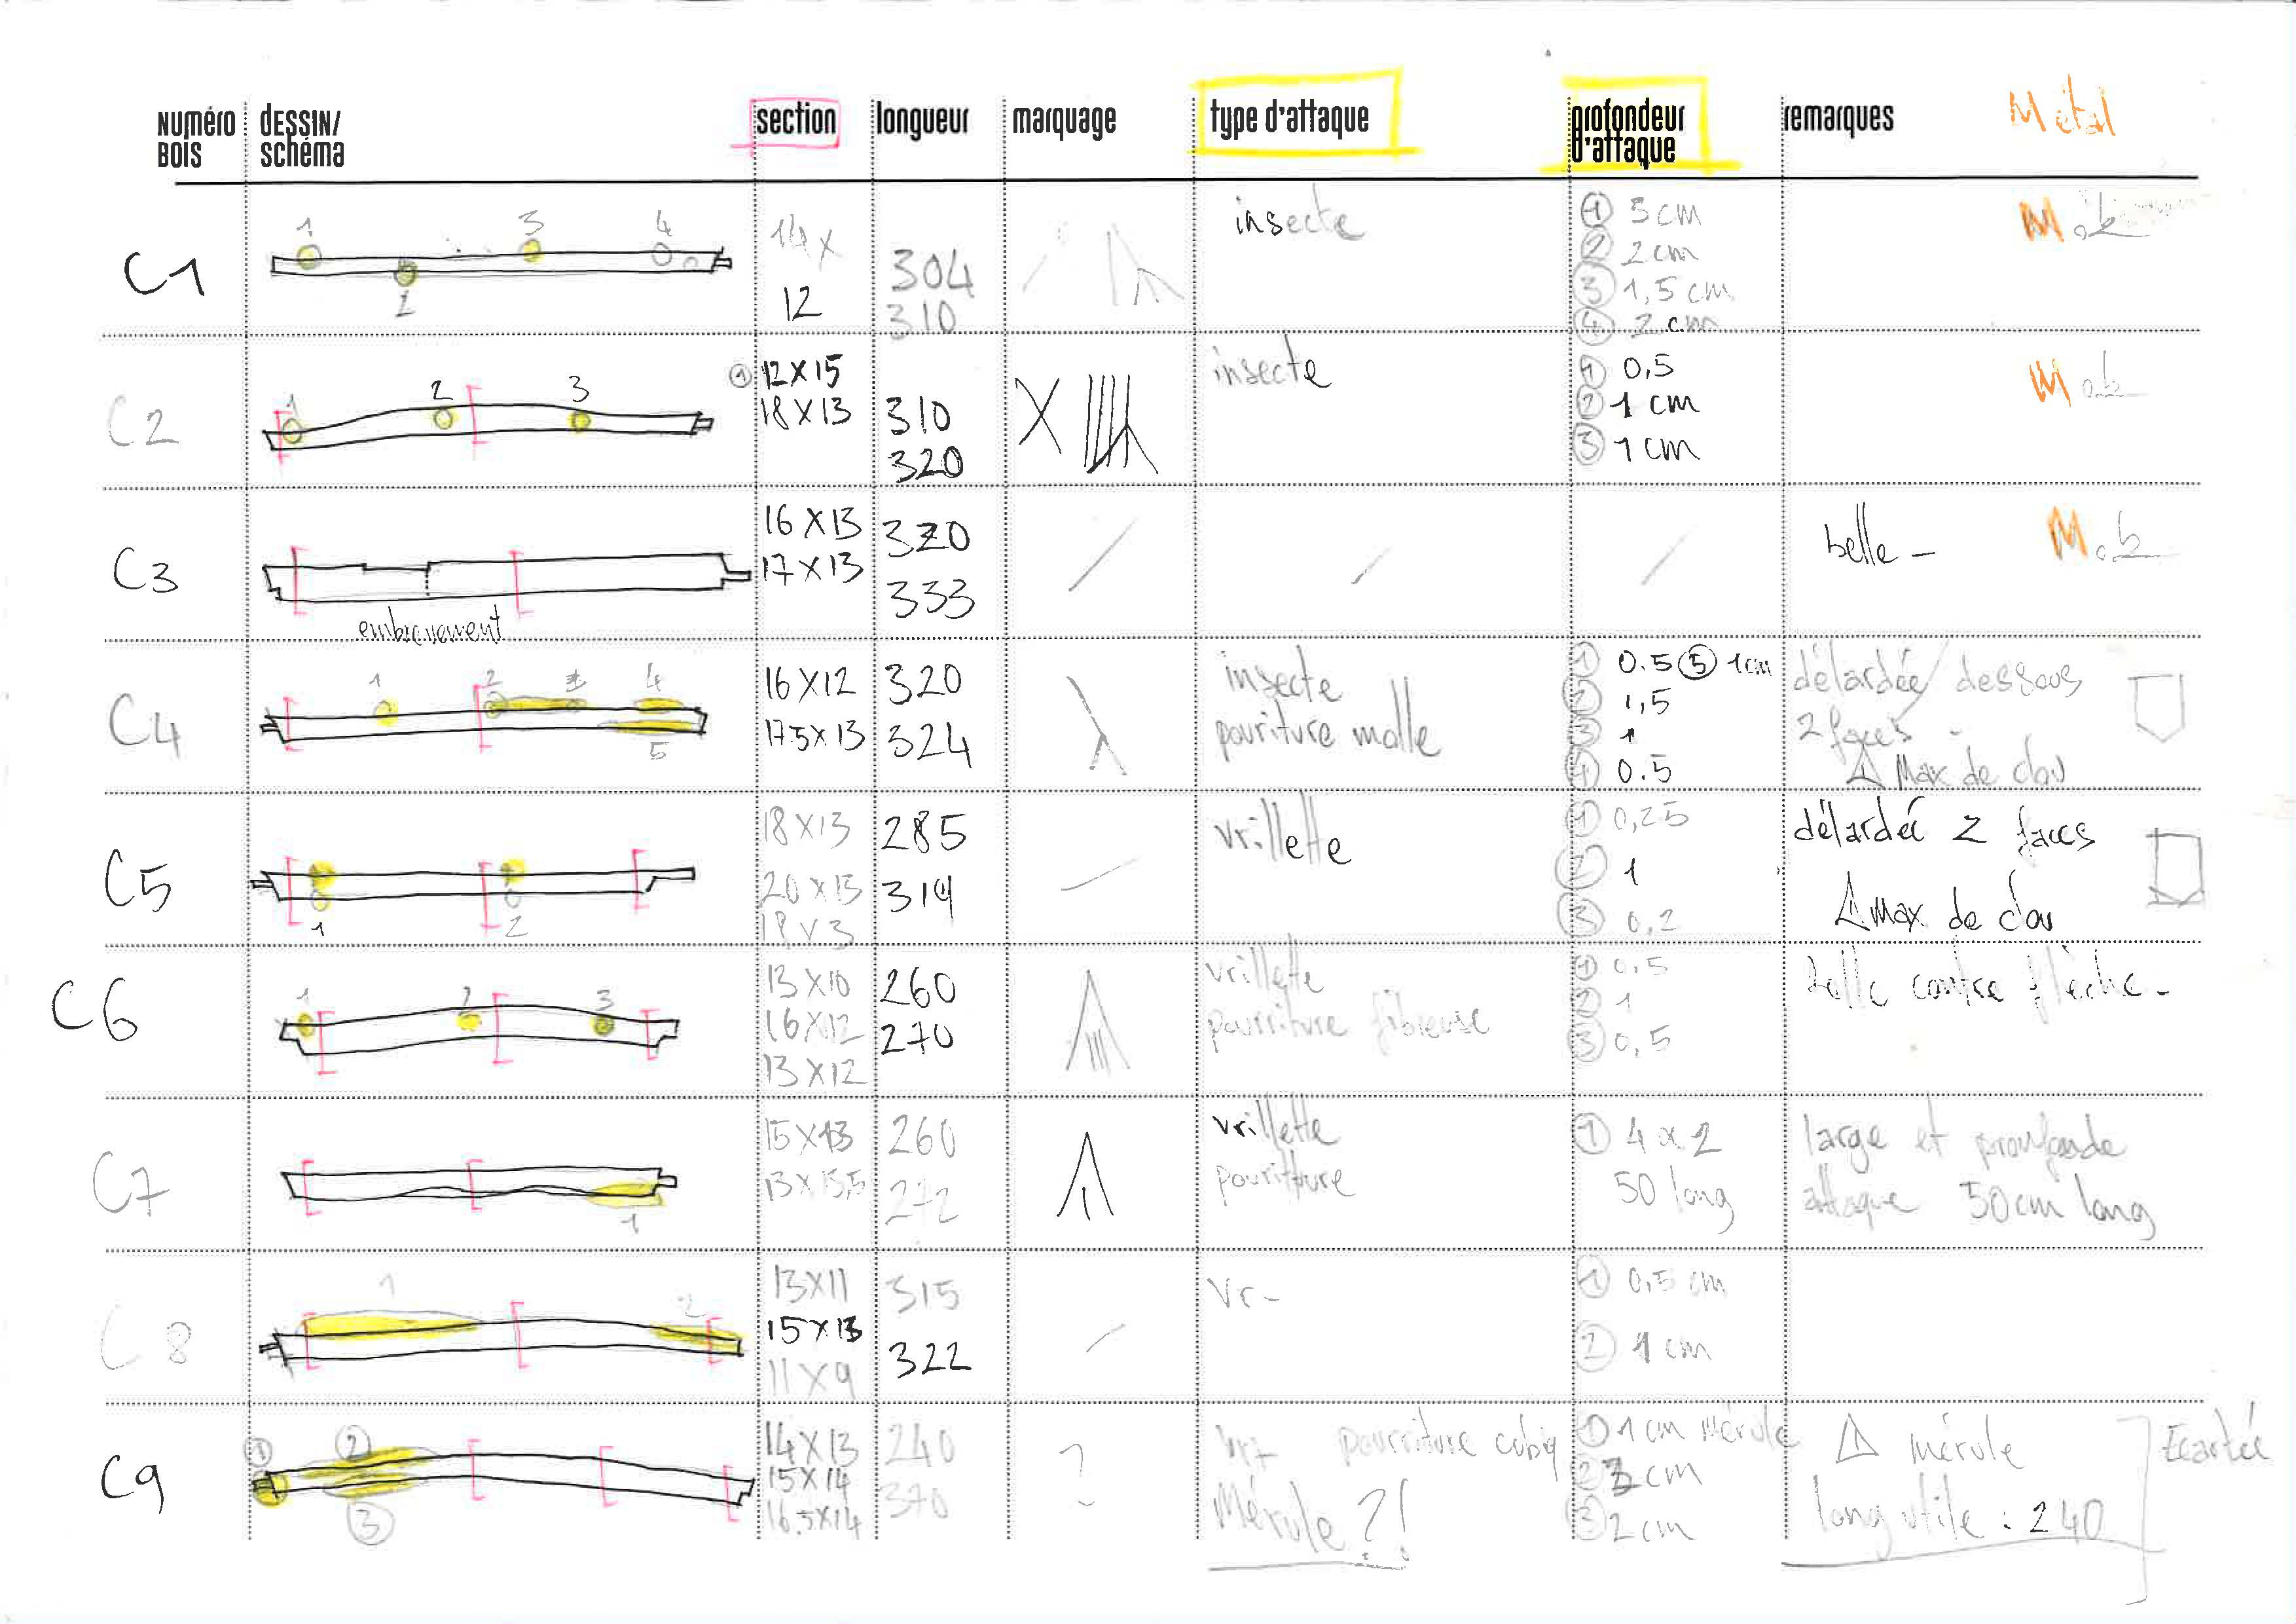 Numéro BOIS
dESSIN/ schéma
section
longueur
marquage
type d'attaque
profondeur d'attaque
remarques
Métal
C1
1
2
3
4
14 x
12
304
310
insecte
① 3 cm
② 2 cm
③ 1,5 cm
④ 2 cm
M.ok
C2
1
2
3
① 12 X 15
18 X 13
310
320
insecte
① 0,5
② 1 cm
③ 1 cm
M ok
C3
embrevement
16 X 13
17 X 13
320
333
belle -
M.ok
C4
1
2
4
5
16 X 12
17 5 X 13
320
324
insecte
pouriture molle
① 0.5 ⑤ 1 cm
② 1,5
③ 1
④ 0.5
délardée dessous
2 faces -
⚠ Max de clou
C5
1
2
18 X 13
20 X 13
285
314
vrillette
① 0,25
② 1
③ 0,2
délardée 2 faces
⚠ max de clou
C6
1
2
3
13 X 10
16 X 12
13 X 12
260
270
vrillette
pourriture fibreuse
① 0.5
② 1
③ 0,5
belle contre flèche -
C7
1
15 X 13
13 X 13,5
260
272
vrillette
pouriture
① 4 à 2
50 long
large et proufonde
attaque 50 cm long
C8
1
2
13 X 11
15 X 13
11 X 9
315
322
vr -
① 0,5 cm
② 1 cm
C9
①
②
③
14 X 13
15 X 14
16.5 X 14
240
370
?
pourriture cubiq
Mérule ?!
① 1 cm Mérule
② 3 cm
③ 2 cm
⚠ mérule
long utile : 240
Ecartée